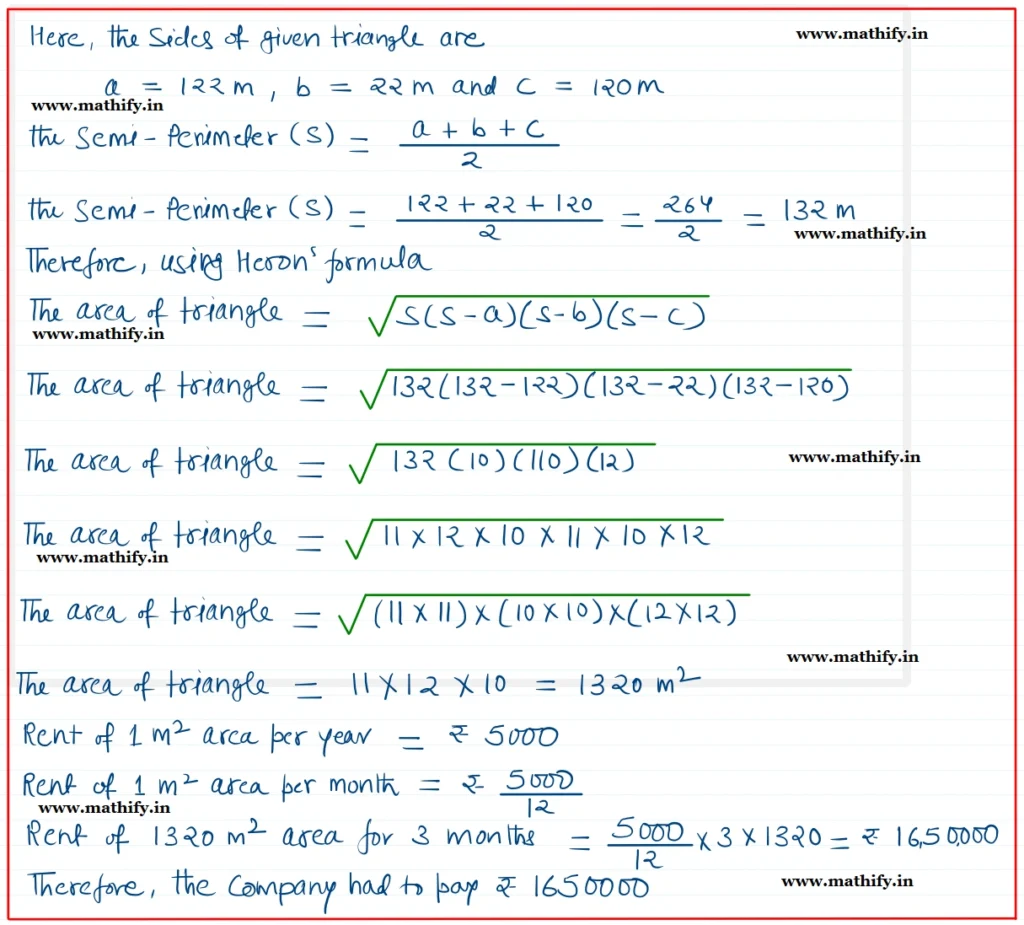 Here, the Sides of given triangle are
www.mathify.in
a = 122 m , b = 22 m and c = 120 m
www.mathify.in
the Semi-Perimeter (S) = a + b + c / 2
the Semi-Perimeter (S) = 122 + 22 + 120 / 2 = 264 / 2 = 132 m
www.mathify.in
Therefore, using Heron's formula
The area of triangle = √S(S-a)(S-b)(S-c)
www.mathify.in
The area of triangle = √132(132-122)(132-22)(132-120)
The area of triangle = √132 (10)(110)(12)
www.mathify.in
The area of triangle = √11 × 12 × 10 × 11 × 10 × 12
www.mathify.in
The area of triangle = √(11 × 11) × (10 × 10) × (12 × 12)
www.mathify.in
The area of triangle = 11 × 12 × 10 = 1320 m²
Rent of 1 m² area per year = ₹ 5000
Rent of 1 m² area per month = ₹ 5000 / 12
www.mathify.in
Rent of 1320 m² area for 3 months = 5000 / 12 × 3 × 1320 = ₹ 16,50,000
Therefore, the Company had to pay ₹ 1650000
www.mathify.in